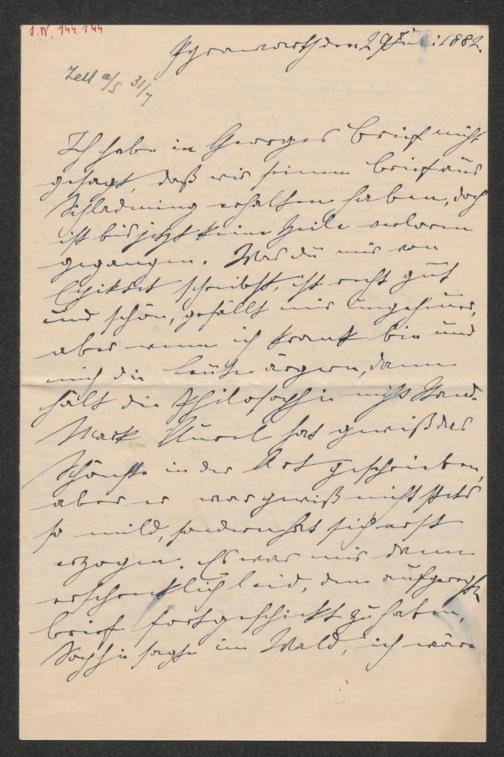 I.N. 144.144
Pyrawarth den 29 Juli 1882.
Zell a/S 31/7
Ich habe in Georges Brief nicht
gesagt, daß wir seinen Brief aus
Schladming erhalten haben, doch
ist bis jetzt keine Zeile verloren
gegangen. Was du mir von
Epiktet schreibst, ist recht gut
und schön, gefällt mir ungeheuer,
aber wenn ich krank bin und
mich die Leute ärgern, dann
hält die Philosophie nicht Stand.
Mark Aurel hat gewiß das
Schönste in der Art geschrieben,
aber er war gewiß nicht stets
so mild, sondern hat sich erst
erzogen. Es war mir dann
leid, den
Brief fortgeschickt zu haben,
Sophie sagte im Wald, ich wäre